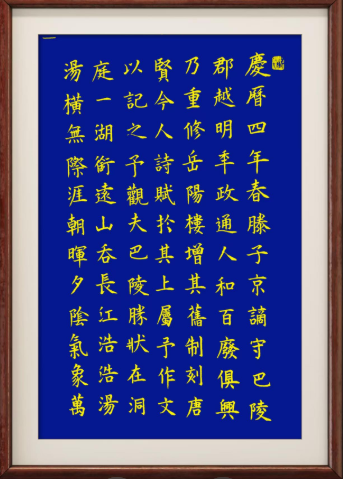 慶曆四年春滕子京謫守巴陵
郡越明秊政通人和百廢俱興
乃重修岳陽樓增其舊制刻唐
賢今人詩賦於其上屬予作文
以記之予觀夫巴陵勝狀在洞
庭一湖銜遠山吞長江浩浩湯
湯橫無際涯朝暉夕陰氣象萬